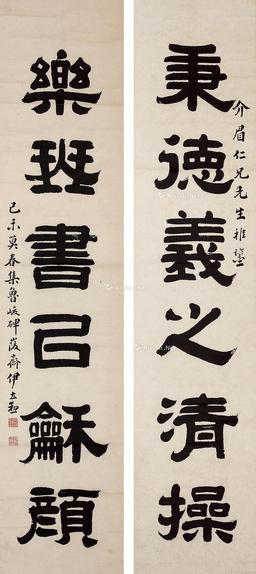 秉德義之清操
介眉仁兄先生雅鑒
樂班書以龢顏
己未莫春集魯峻碑 峻齋伊立勳